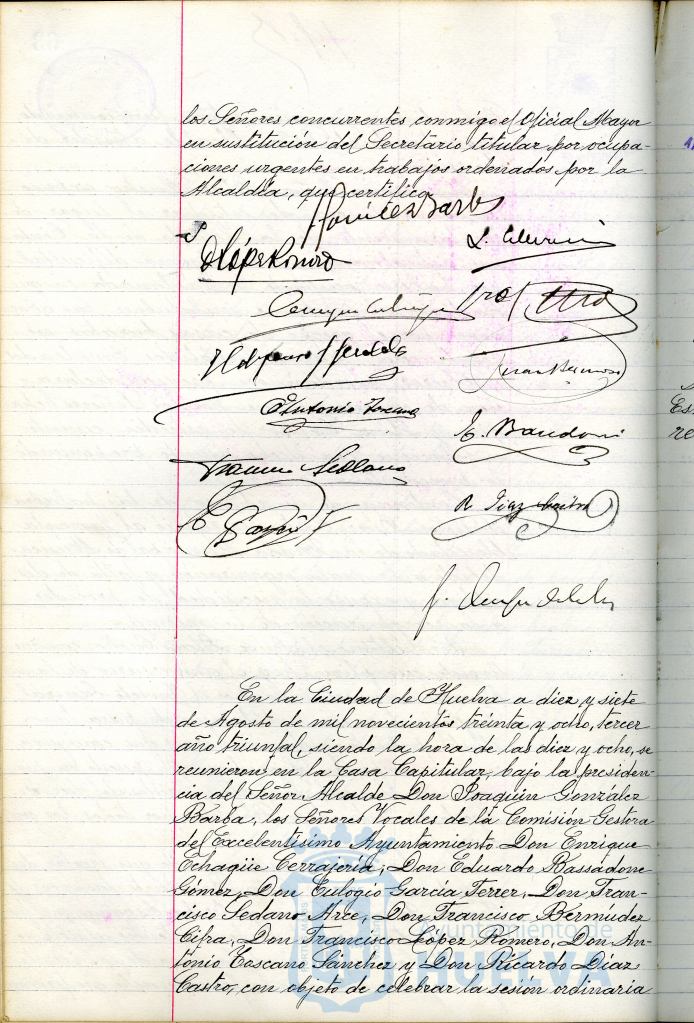 los Señores concurrentes conmigo el Oficial Mayor
en sustitución del Secretario titular por ocupa-
ciones urgentes en trabajos ordenados por la
Alcaldía, que certifico.
González Barba
Antonio Toscano
E. Bassadone
R. Díaz Castro
En la Ciudad de Huelva a diez y siete
de Agosto de mil novecientos treinta y ocho, tercer
año triunfal, siendo la hora de las diez y ocho, se
reunieron en la Casa Capitular, bajo la presiden-
cia del Señor Alcalde Don Joaquín González
Barba, los Señores Vocales de la Comisión Gestora
del Excelentísimo Ayuntamiento Don Enrique
Echagüe Cerrajería, Don Eduardo Bassadone
Gómez, Don Eulogio García Ferrer, Don Fran-
cisco Sedano Arce, Don Francisco Bermudez
Cifra, Don Francisco López Romero, Don An-
tonio Toscano Sánchez y Don Ricardo Díaz
Castro, con objeto de celebrar la sesión ordinaria
Ayuntamiento de
HUELVA